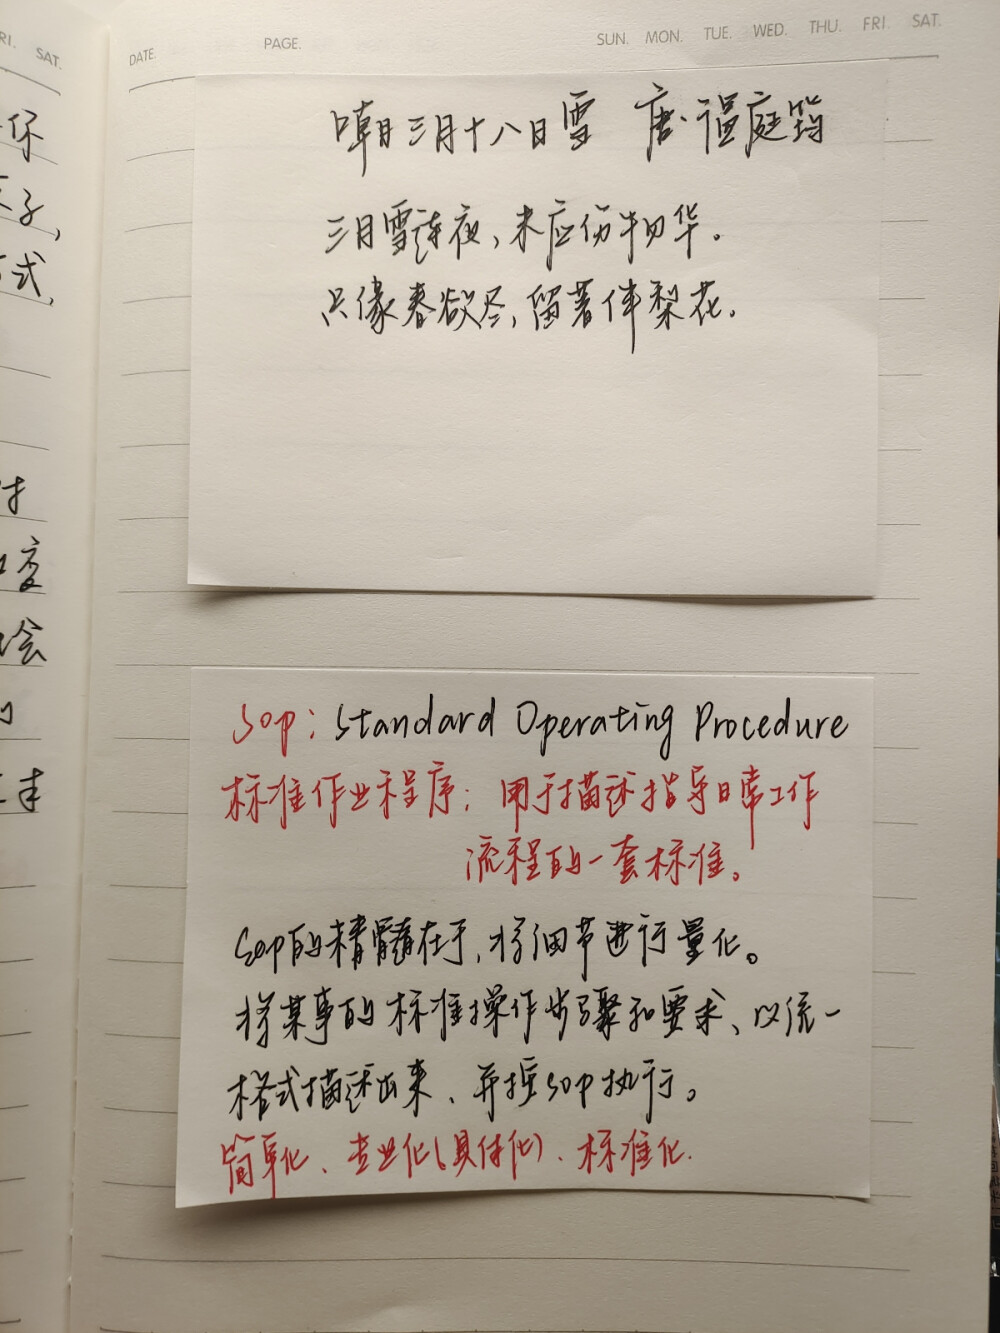 SAT.
你
子,
式,
变
DATE. PAGE. SUN. MON. TUE. WED. THU. FRI. SAT.
嘲三月十八日雪 唐·温庭筠
三月雪连夜,未应伤物华。
只缘春欲尽,留著伴梨花。
SOP: Standard Operating Procedure
标准作业程序:用于描述指导日常工作
流程的一套标准。
SOP的精髓在于,将细节进行量化。
将某事的标准操作步骤和要求、以统一
格式描述出来、并按SOP执行。
简单化、专业化(具体化)、标准化.